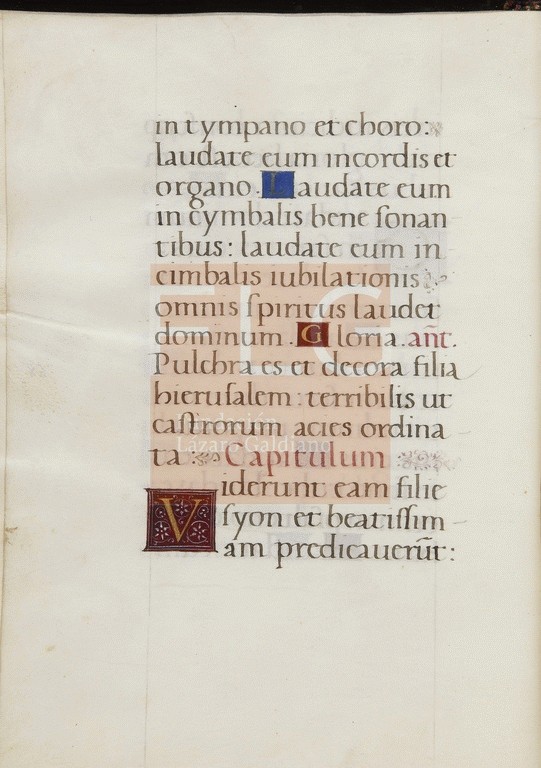 in tympano et choro:
laudate eum in cordis et
organo. Laudate eum
in cymbalis bene ſonan
tibus: laudate eum in
cimbalis iubilationis:
omnis ſpiritus laudet
dominum. Gloria. añt.
Pulchra es et decora filia
hieruſalem: terribilis ut
caſtrorum acies ordina
ta Capitulum
Viderunt eam filie
ſyon et beatiſſim
am predicauerūt:
FLG
Fundación
Lázaro Galdiano